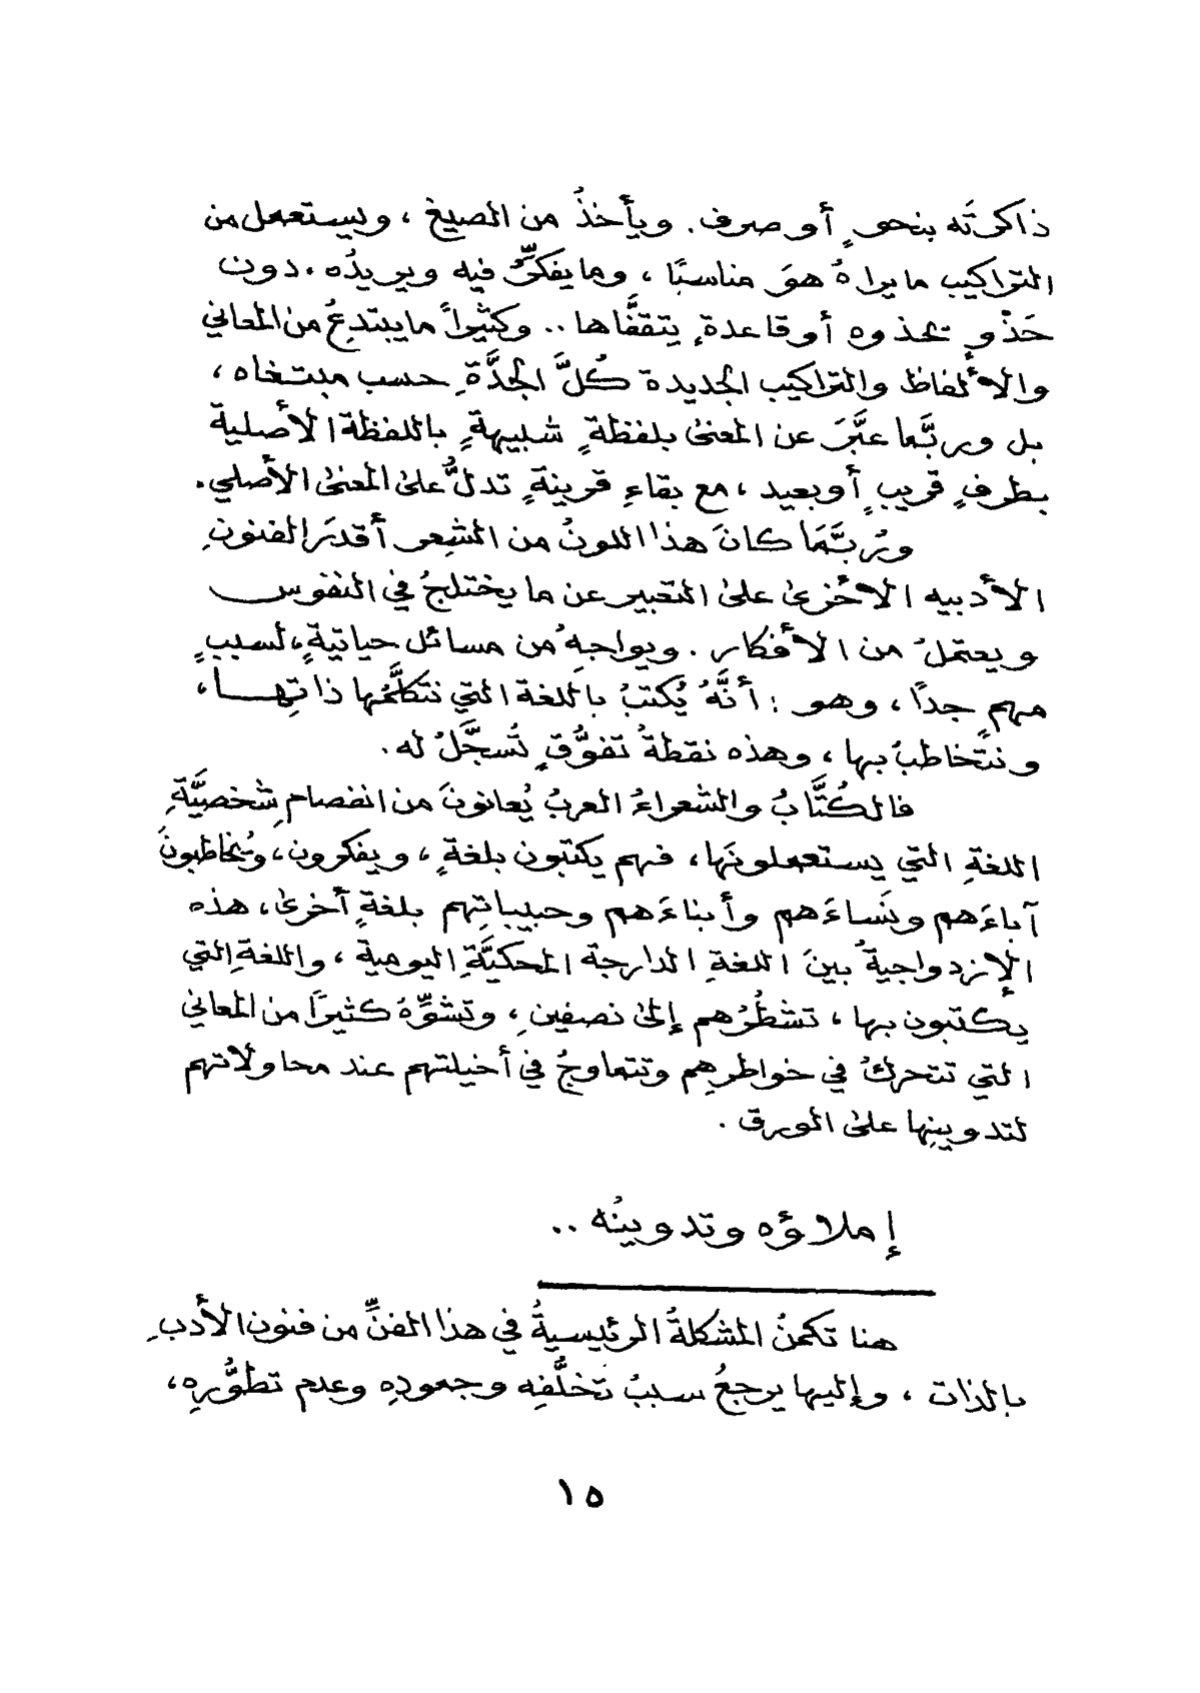 ذاكرتَه بنحوٍ أو صرف. ويأخذُ من الصيغ ، ويستعمل من
التراكيب ما يراهُ هوَ مناسبًا ، وما يفكِّرُ فيه ويريدُه . دون
حَذْوٍ يحذوه أو قاعدةٍ يتقفَّاها .. وكثيراً ما يبتدِعُ من المعاني
والألفاظ والتراكيب الجديدة كُلَّ الجِدَّةِ حسب مبتغاه ،
بل وربَّما عبَّرَ عن المعنىٰ بلفظةٍ شبيهةٍ باللفظة الأصلية
بطرفٍ قريبٍ أو بعيد ، مع بقاءِ قرينةٍ تدلُّ علىٰ المعنىٰ الأصلي .
ورُبَّمَا كانَ هذا اللونُ من الشِعر أقدَر الفنونِ
الأدبيه الأُخرىٰ علىٰ التعبير عن ما يختلجُ في النفوس
ويعتملُ من الأفكار . ويواجِهُ من مسائل حياتيةٍ ، لسببٍ
مهمٍ جداً ، وهو : أنَّهُ يُكتبُ باللغة التي نتكلَّمُها ذاتِها ،
ونتخاطبُ بها ، وهذه نقطةُ تفوُّقٍ تُسجَّلُ له .
فالكُتَّابُ والشعراءُ العربُ يُعانونَ من انفصامِ شخصيَّةِ
اللغةِ التي يستعملونَها ، فهم يكتبون بلغةٍ ، ويفكرون ، ويُخاطبونَ
آباءَهم ونَساءَهم وأبناءَهم وحبيباتِهم بلغةٍ أخرىٰ ، هذه
الإزدواجيةُ بينَ اللغةِ الدارجة المحكيَّةِ اليومية ، واللغةِ التي
يكتبون بها ، تشطُرُهم إلىٰ نصفينِ ، وتشوِّهُ كثيرَاً من المعاني
التي تتحركُ في خواطرِهم وتتماوجُ في أخيلتهم عند محاولاتهم
لتدوينِها علىٰ الورق .
إملاؤه وتدوينُه ..
هنا تكمنُ المشكلةُ الرئيسيةُ في هذا الفنِّ من فنون الأدبِ
بالذات ، وإليها يرجعُ سببُ تخلُّفِه وجمودِه وعدم تطوُّرِه ،
١٥